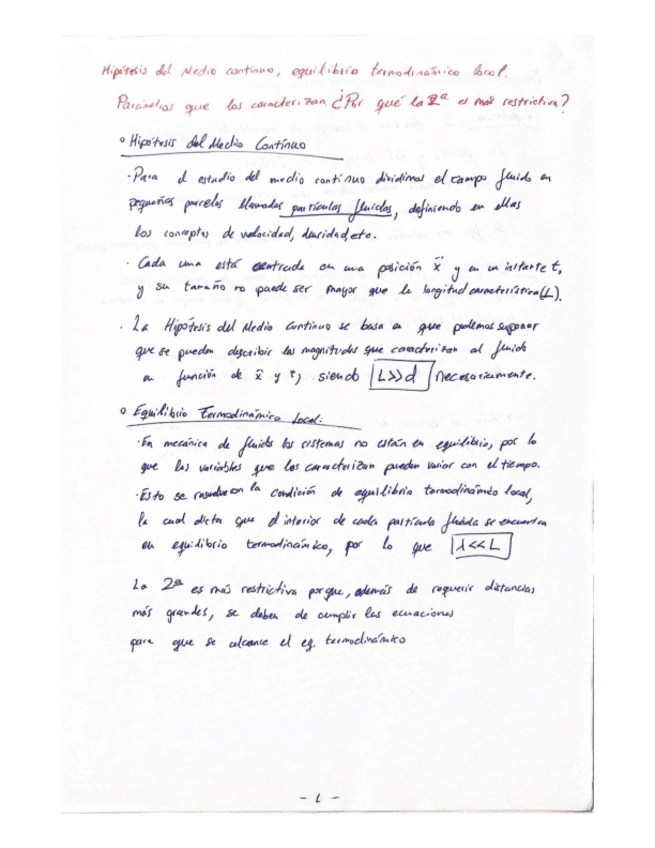 Hipótesis del Medio continuo, equilibrio termodinámico local.
Parámetros que los caracterizan ¿Por qué la 2ª es más restrictiva?
Hipótesis del Medio Continuo
· Para el estudio del medio continuo dividimos el campo fluido en
pequeñas parcelas llamadas partículas fluidas, definiendo en ellas
los conceptos de velocidad, densidad, etc.
· Cada una está centrada en una posición x⃗ y en un instante t,
y su tamaño no puede ser mayor que la longitud característica (L).
· La Hipótesis del Medio Continuo se basa en que podemos suponer
que se pueden describir las magnitudes que caracterizan al fluido
en función de x⃗ y t, siendo L>>d necesariamente.
Equilibrio Termodinámico Local:
· En mecánica de fluidos los sistemas no están en equilibrio, por lo
que las variables que los caracterizan pueden variar con el tiempo.
· Esto se resuelve con la condición de equilibrio termodinámico local,
la cual dicta que el interior de cada partícula fluida se encuentra
en equilibrio termodinámico, por lo que λ<<L
La 2ª es más restrictiva porque, además de requerir distancias
más grandes, se deben de cumplir las ecuaciones
para que se alcance el eq. termodinámico
- 1 -